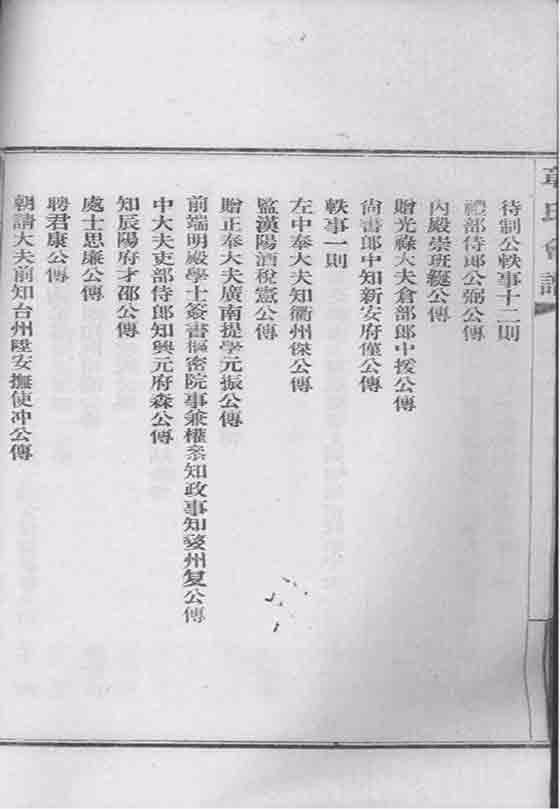 章氏會譜
待制公軼事十二則
禮部侍郎公弼公傳
內殿崇班縋公傳
贈光祿大夫倉部郎中援公傳
尚書郎中知新安府僅公傳
軼事一則
左中奉大夫知衢州傑公傳
監漢陽酒稅憲公傳
贈正奉大夫廣南提學元振公傳
前端明殿學士簽書樞密院事兼權叅知政事知婺州复公傳
中大夫吏部侍郎知興元府森公傳
知辰陽府才邵公傳
處士思廉公傳
聘君康公傳
朝請大夫前知台州陞安撫使冲公傳